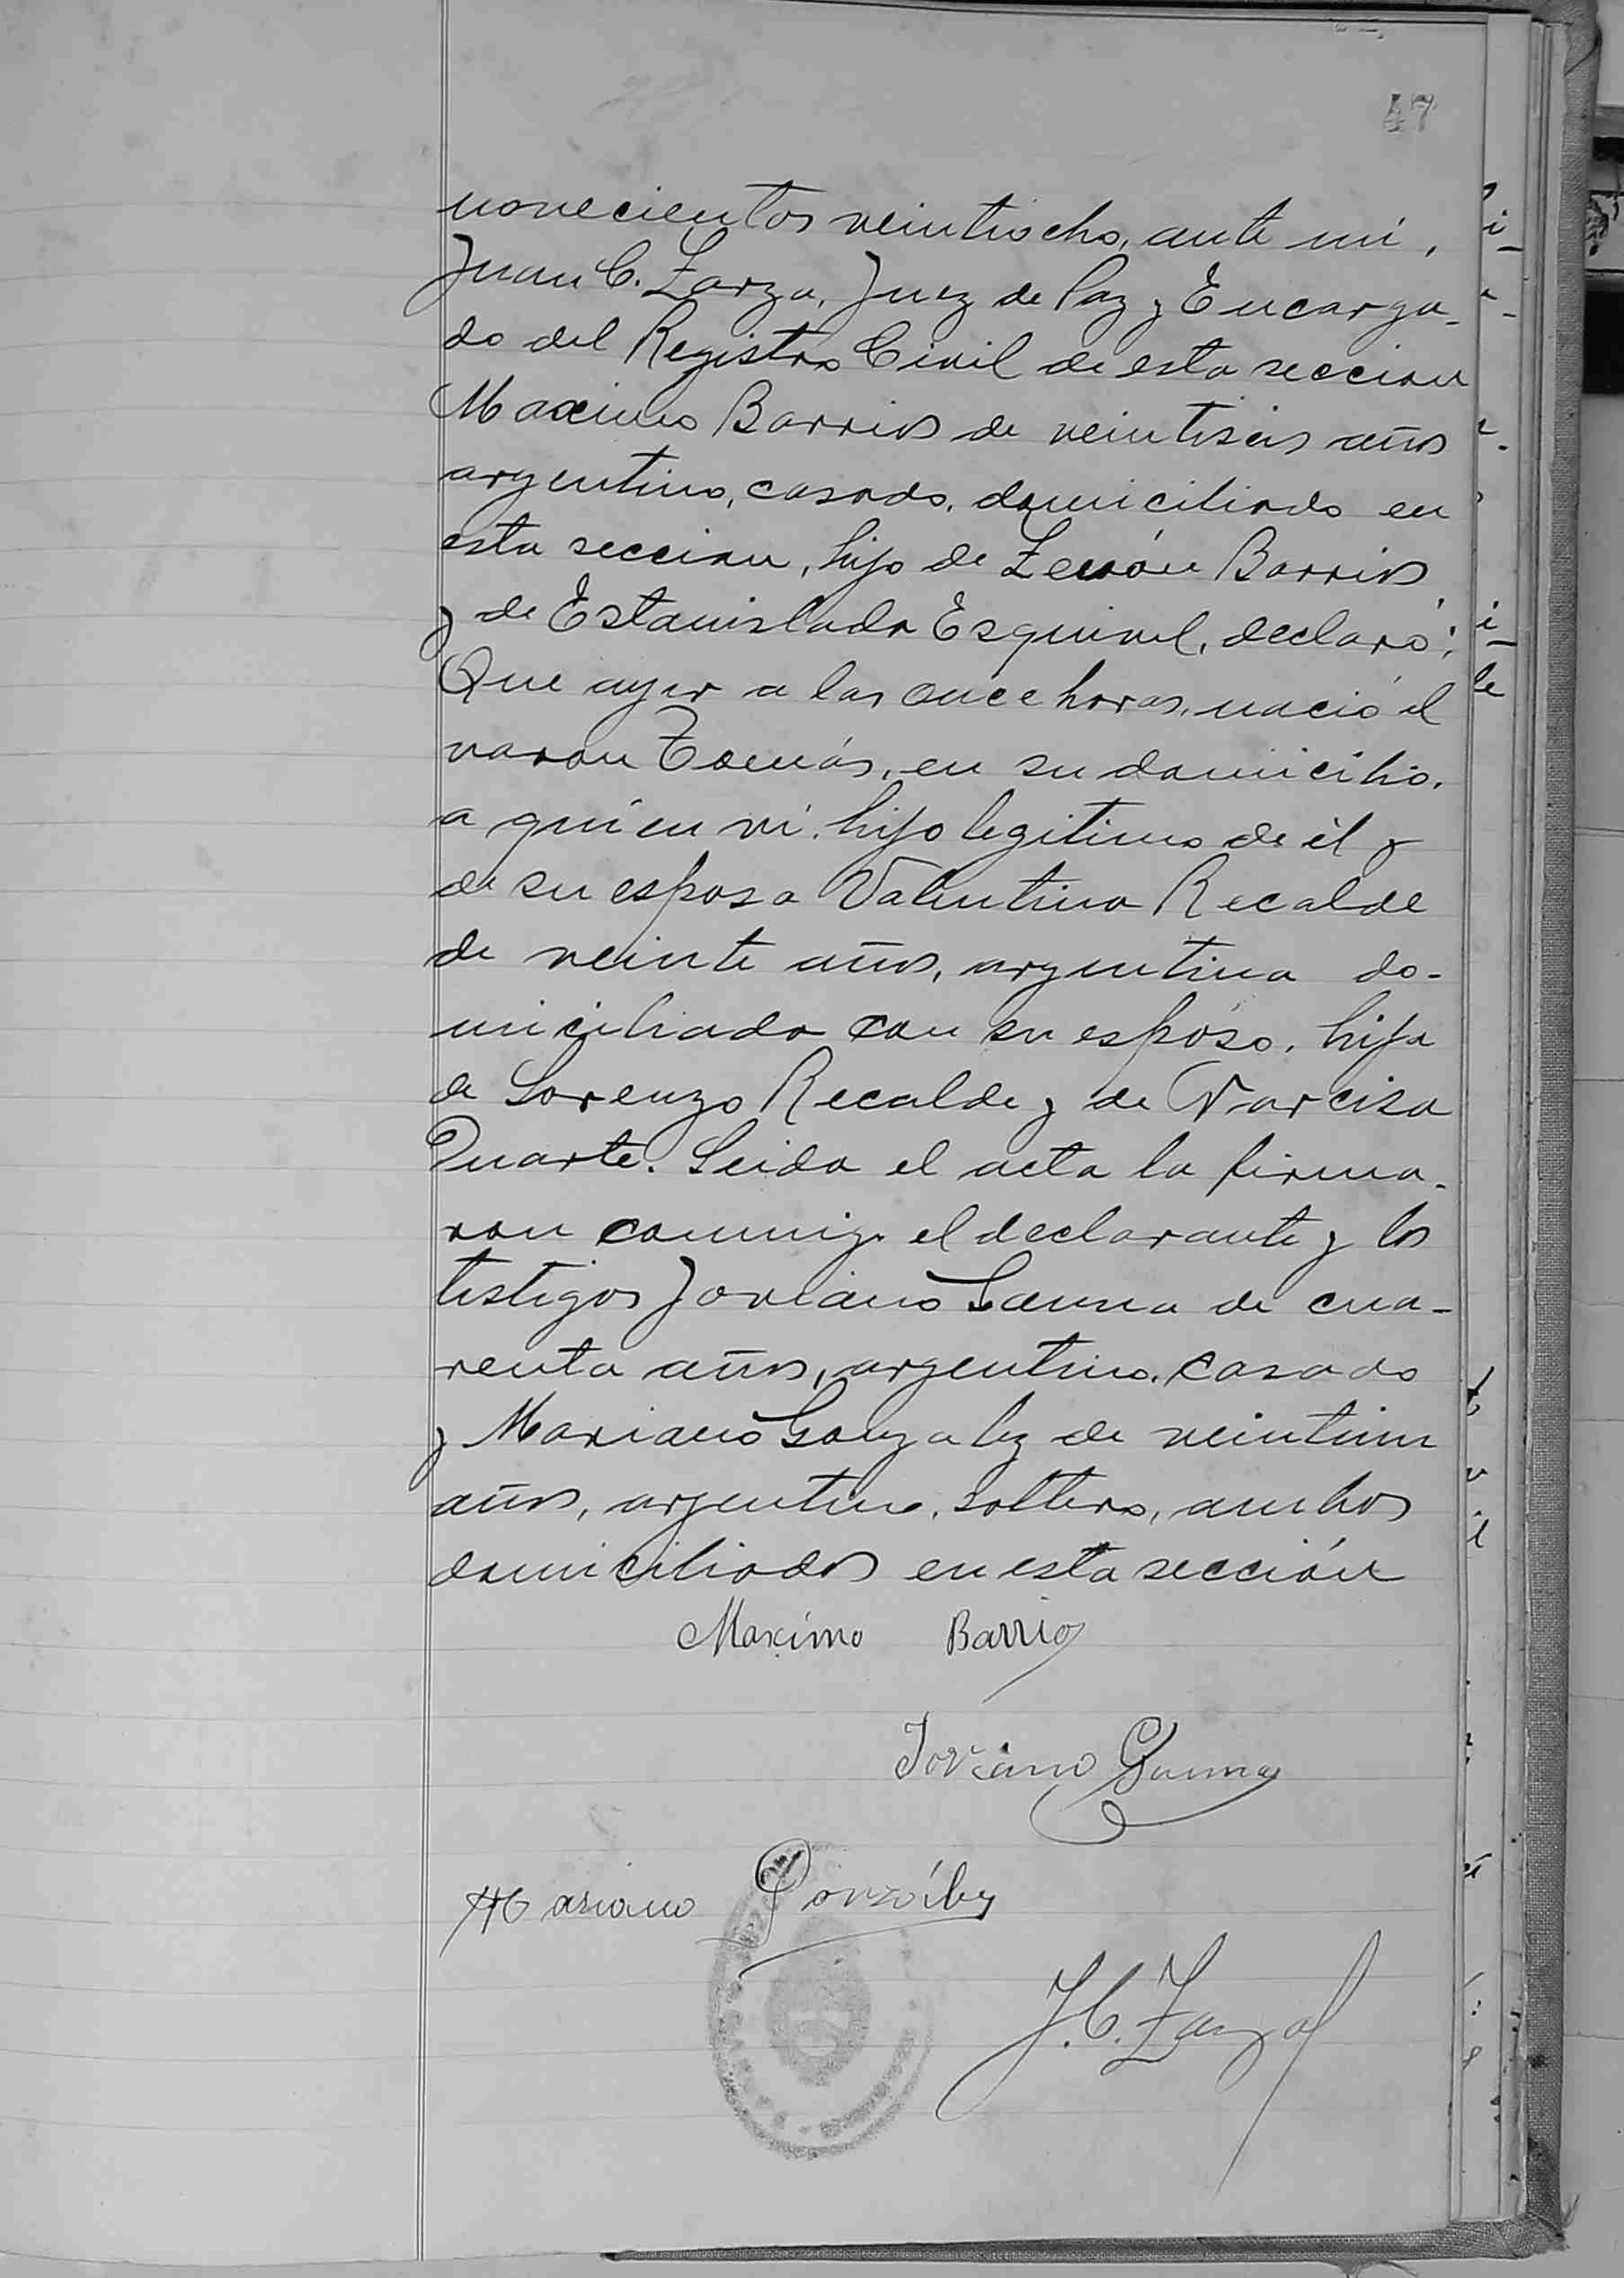 47
novecientos veintiocho, ante mi,
Juan C. Zarza, Juez de Paz y Encarga-
do del Registro Civil de esta seccion
Maximo Barrios de veintiseis años
argentino, casado, domiciliado en
esta seccion, hijo de Zenón Barrios
y de Estanislada Esquivel, declaró:
Que ayer a las once horas, nació el
varon Tomás, en su domicilio,
a quien vi. hijo legitimo de él y
de su esposa Valentina Recalde
de veinte años, argentina do-
miciliada con su esposo, hija
de Lorenzo Recalde y de Narcisa
Duarte. Leida el acta la firma-
ron conmigo el declarante y los
testigos Joviano Gauna de cua-
renta años, argentino, casado
y Mariano Gonzalez de veintiun
años, argentino, soltero, ambos
domiciliados en esta sección
Maximo Barrio
Joviano Gauna
Mariano Gonzalez
J. C. Zarza